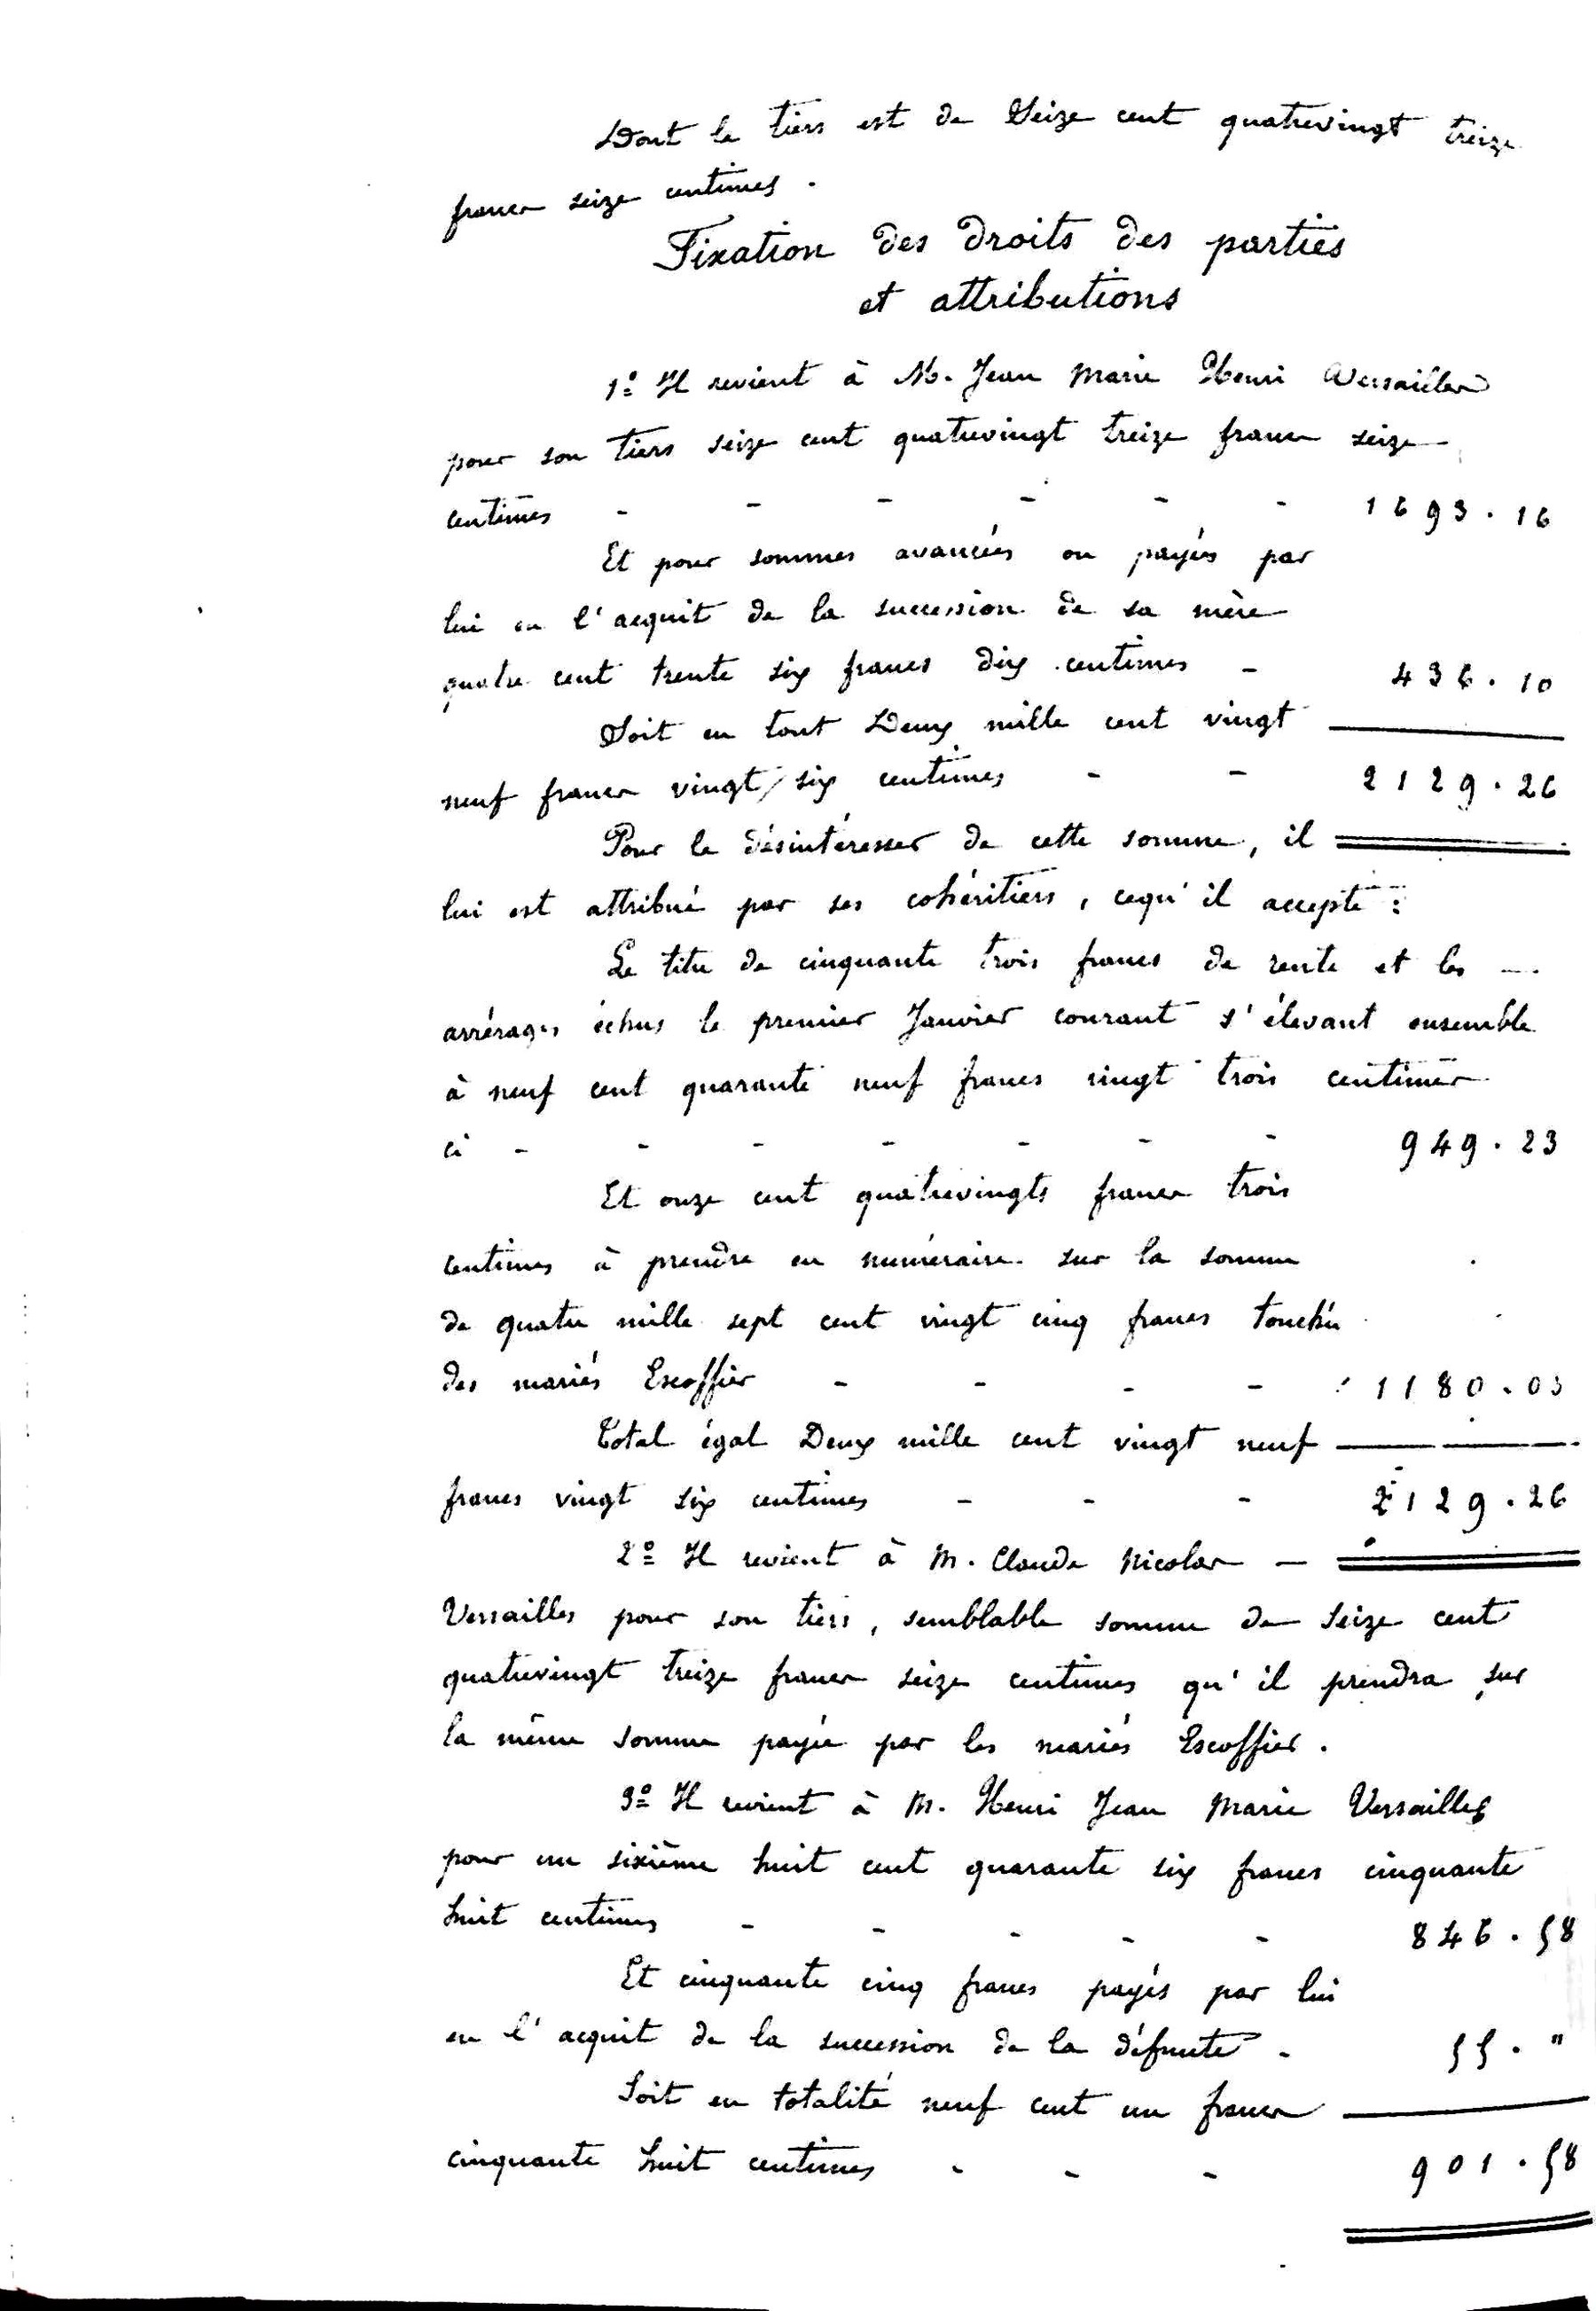 Dont le tiers est de Seize cent quatrevingt treize
francs seize centimes .
Fixation des droits des parties
et attributions
1º Il revient à M. Jean Marie Henri Versailles
pour son tiers seize cent quatrevingt treize francs seize
centimes - - - - - - 1693.16
Et pour sommes avancées ou payées par
lui en l'acquit de la succession de sa mère
quatre cent trente six francs dix centimes - 436.10
Soit en tout Deux mille cent vingt
neuf francs vingt six centimes - - 2129.26
Pour le désintéresser de cette somme, il
lui est attribué par ses cohéritiers, cequ'il accepte :
Le titre de cinquante trois francs de rente et les
arrérages échus le premier Janvier courant s'élevant ensemble
à neuf cent quarante neuf francs vingt trois centimes
ci - - - - - - - 949.23
Et onze cent quatrevingts francs trois
centimes à prendre en numéraire sur la somme
de quatre mille sept cent vingt cinq francs touchée
des mariés Escoffier - - - - 1180.03
Total égal Deux mille cent vingt neuf
francs vingt six centimes - - - 2129.26
2º Il revient à M. Claude Nicolas -
Versailles pour son tiers, semblable somme de Seize cent
quatrevingt treize francs seize centimes qu'il prendra sur
la même somme payée par les mariés Escoffier.
3º Il revient à M. Henri Jean Marie Versailles
pour un sixième huit cent quarante six francs cinquante
huit centimes - - - - - 846.58
Et cinquante cinq francs payés par lui
en l'acquit de la succession de la défunte - 55."
Soit en totalité neuf cent un francs
cinquante huit centimes - - - 901.58